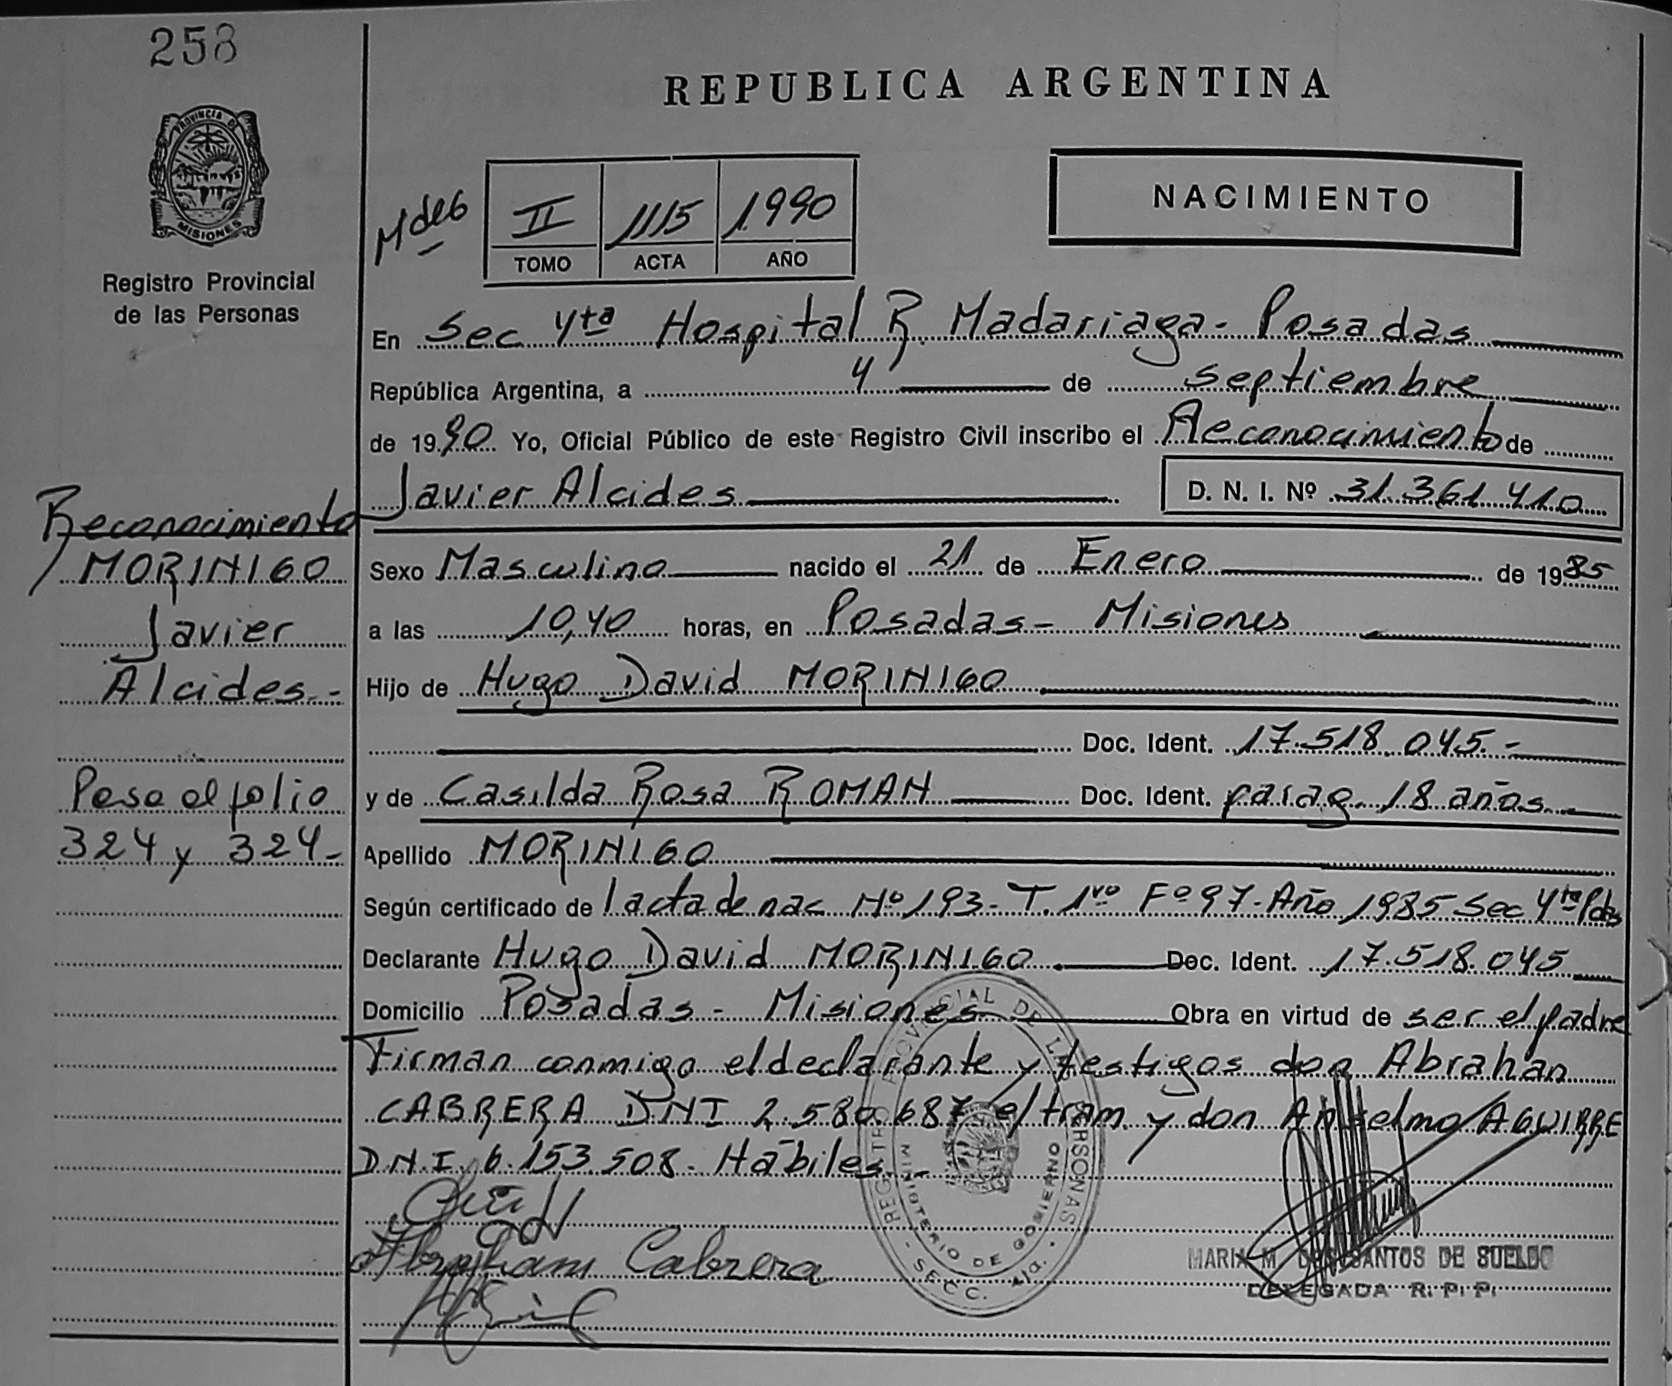 258
REPUBLICA ARGENTINA
PROVINCIA DE
MISIONES
Registro Provincial
de las Personas
M de 6
II 1115 1990
TOMO ACTA AÑO
NACIMIENTO
En Sec 4ta Hospital R. Madariaga - Posadas
República Argentina, a 4 de septiembre
de 1990 Yo, Oficial Público de este Registro Civil inscribo el Reconocimiento de
Javier Alcides D. N. I. Nº 31.361.410
Reconocimiento
MORINIGO
Javier
Alcides.-
Pasa al folio
324 y 324-
Sexo Masculino nacido el 21 de Enero de 1985
a las 10,40 horas, en Posadas - Misiones
Hijo de Hugo David MORINIGO
Doc. Ident. 17.518.045.-
y de Casilda Rosa ROMAN Doc. Ident. parag. 18 años
Apellido MORINIGO
Según certificado de / acta de nac Nº 193 - T. 1ro Fº 97 - Año 1985 Sec 4ta Pdas
Declarante Hugo David MORINIGO Doc. Ident. 17.518.045
Domicilio Posadas - Misiones Obra en virtud de ser el padre
Firman conmigo el declarante y testigos don Abrahan
CABRERA DNI 2.580.687 e/tram y don Anselmo AGUIRRE
D.N.I. 6.153.508. Hábiles.-
Abraham Cabrera
REGISTRO PROVINCIAL DE LAS PERSONAS
MINISTERIO DE GOBIERNO
SECC. 4ta.
MARIA M. DOS SANTOS DE SUELDO
DELEGADA R. P. P.